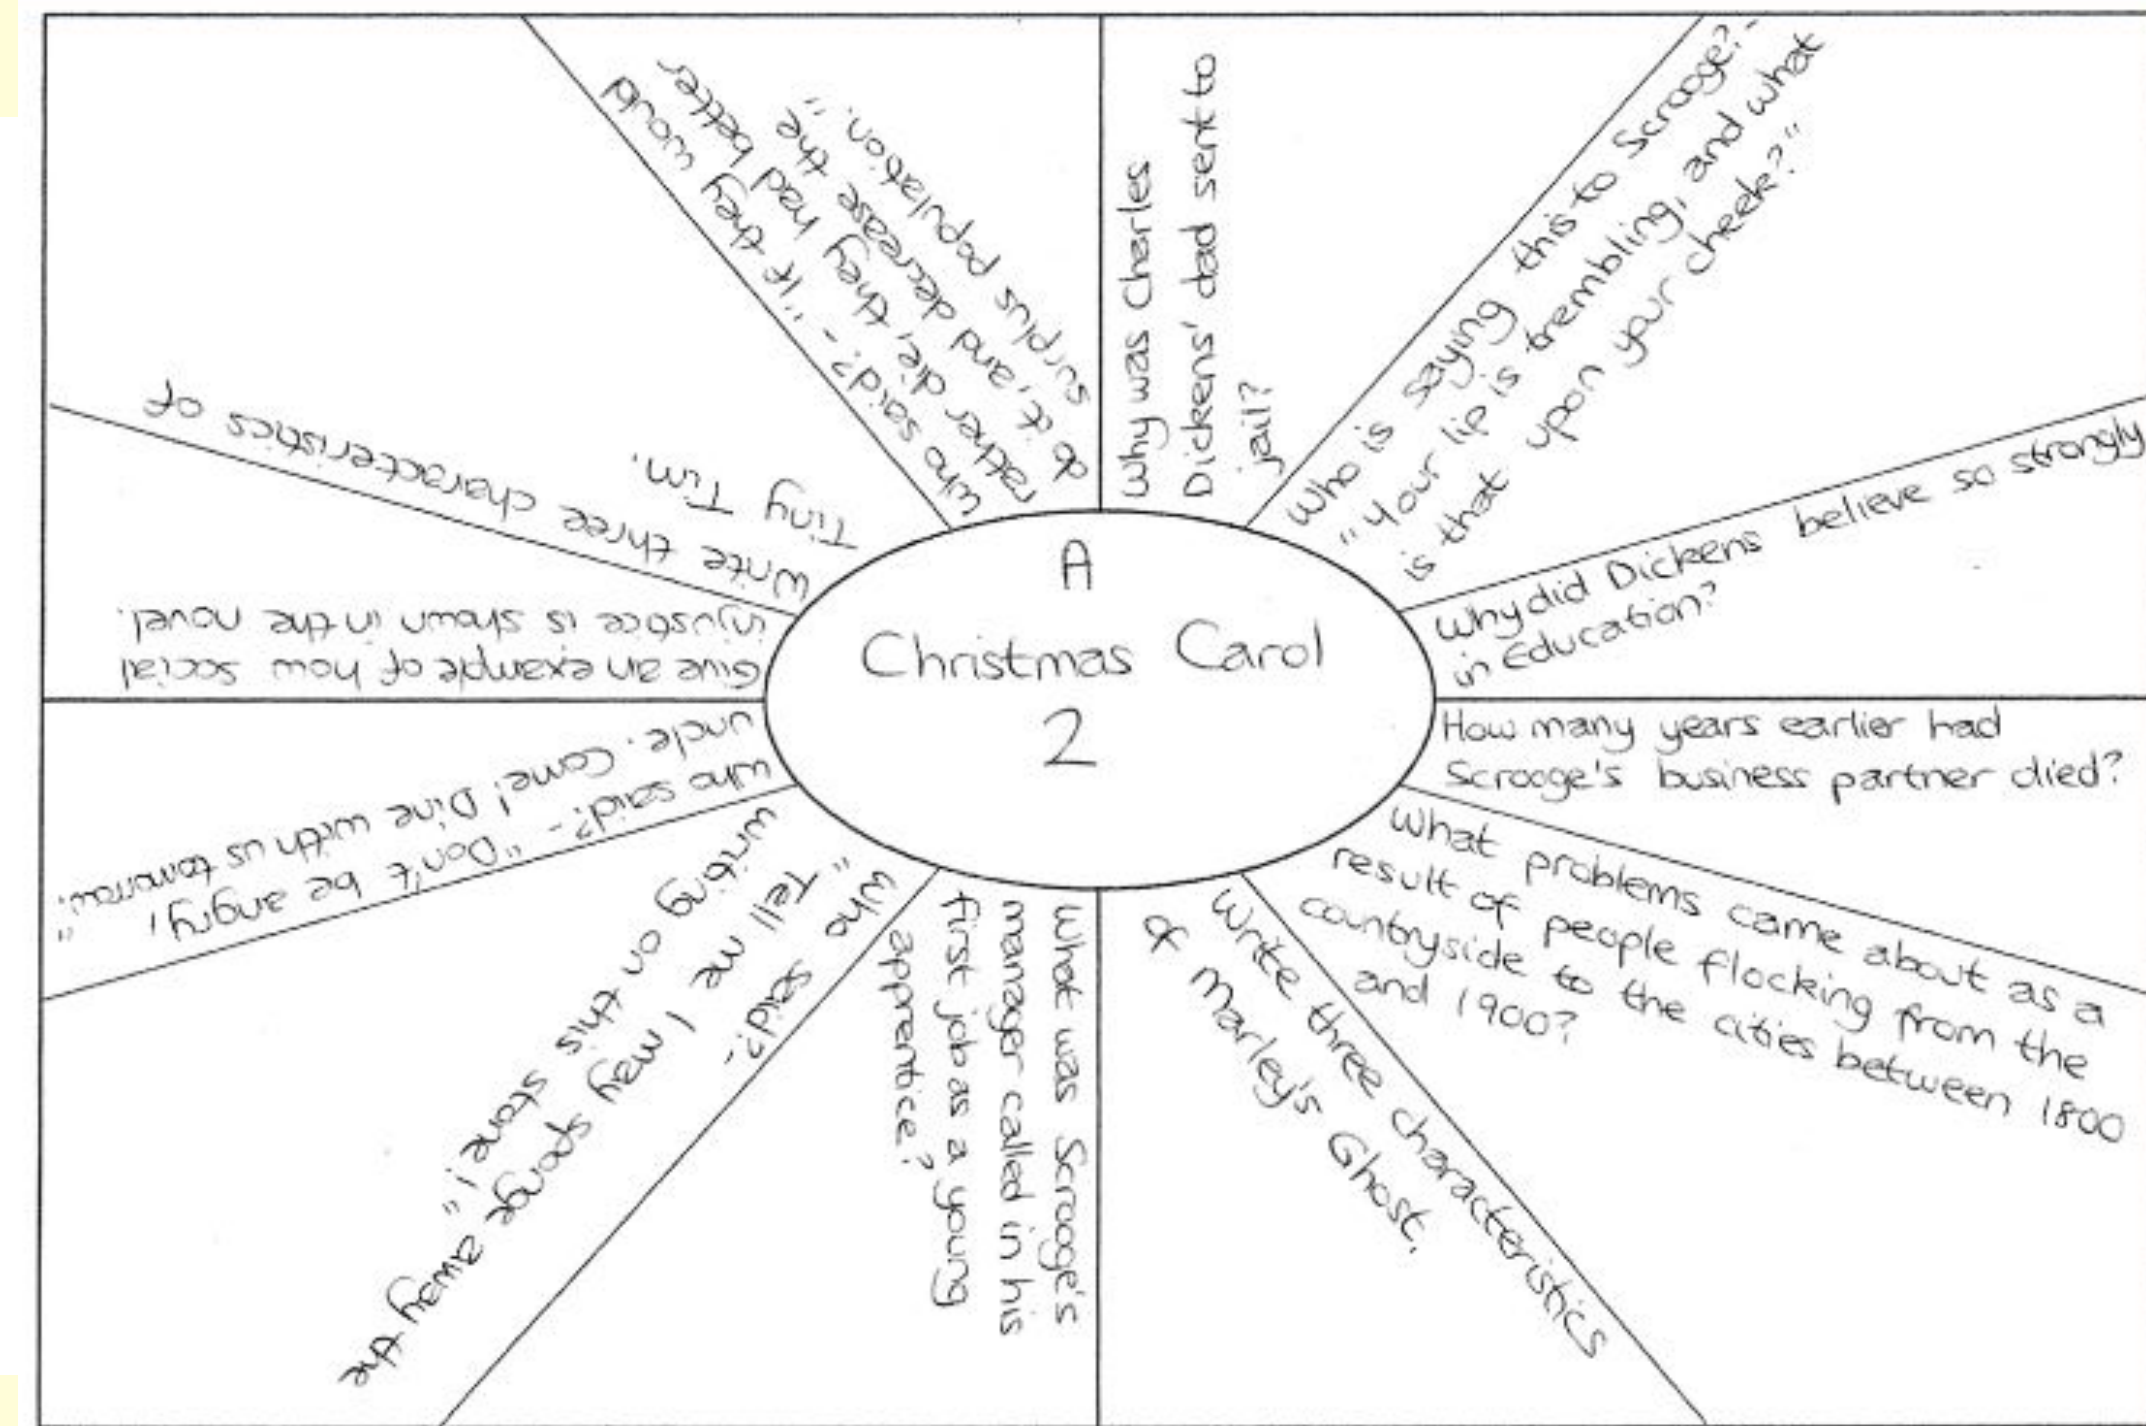 A
Christmas Carol
2
Why was Charles
Dickens' dad sent to
jail?
Who is saying this to Scrooge?-
"Your lip is trembling, and what
is that upon your cheek?"
Why did Dickens believe so strongly
in Education?
How many years earlier had
Scrooge's business partner died?
What problems came about as a
result of people flocking from the
countryside to the cities between 1800
and 1900?
Write three characteristics
of Marley's Ghost.
What was Scrooge's
manager called in his
first job as a young
apprentice?
Who said?-
"Tell me I may sponge away the
writing on this stone!"
Who said?- "Don't be angry,
uncle. Come! Dine with us tomorrow."
Give an example of how social
injustice is shown in the novel.
Write three characteristics of
Tiny Tim.
Who said?- "If they would
rather die, they had better
do it, and decrease the
surplus population."